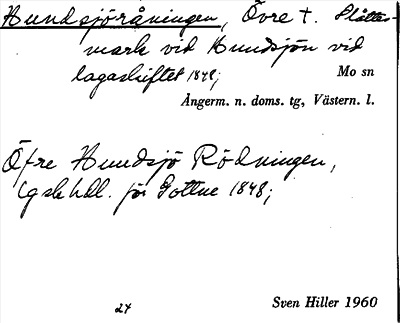 Hundsjöråningen, Övre t. Slåtter-
mark vid Hundsjön vid
lagaskiftet 1848; Mo sn
Ångerm. n. doms. tg, Västern. l.
Öfre Hundsjö Rödningen,
Lgskhdl. för Gottne 1848;
24 Sven Hiller 1960